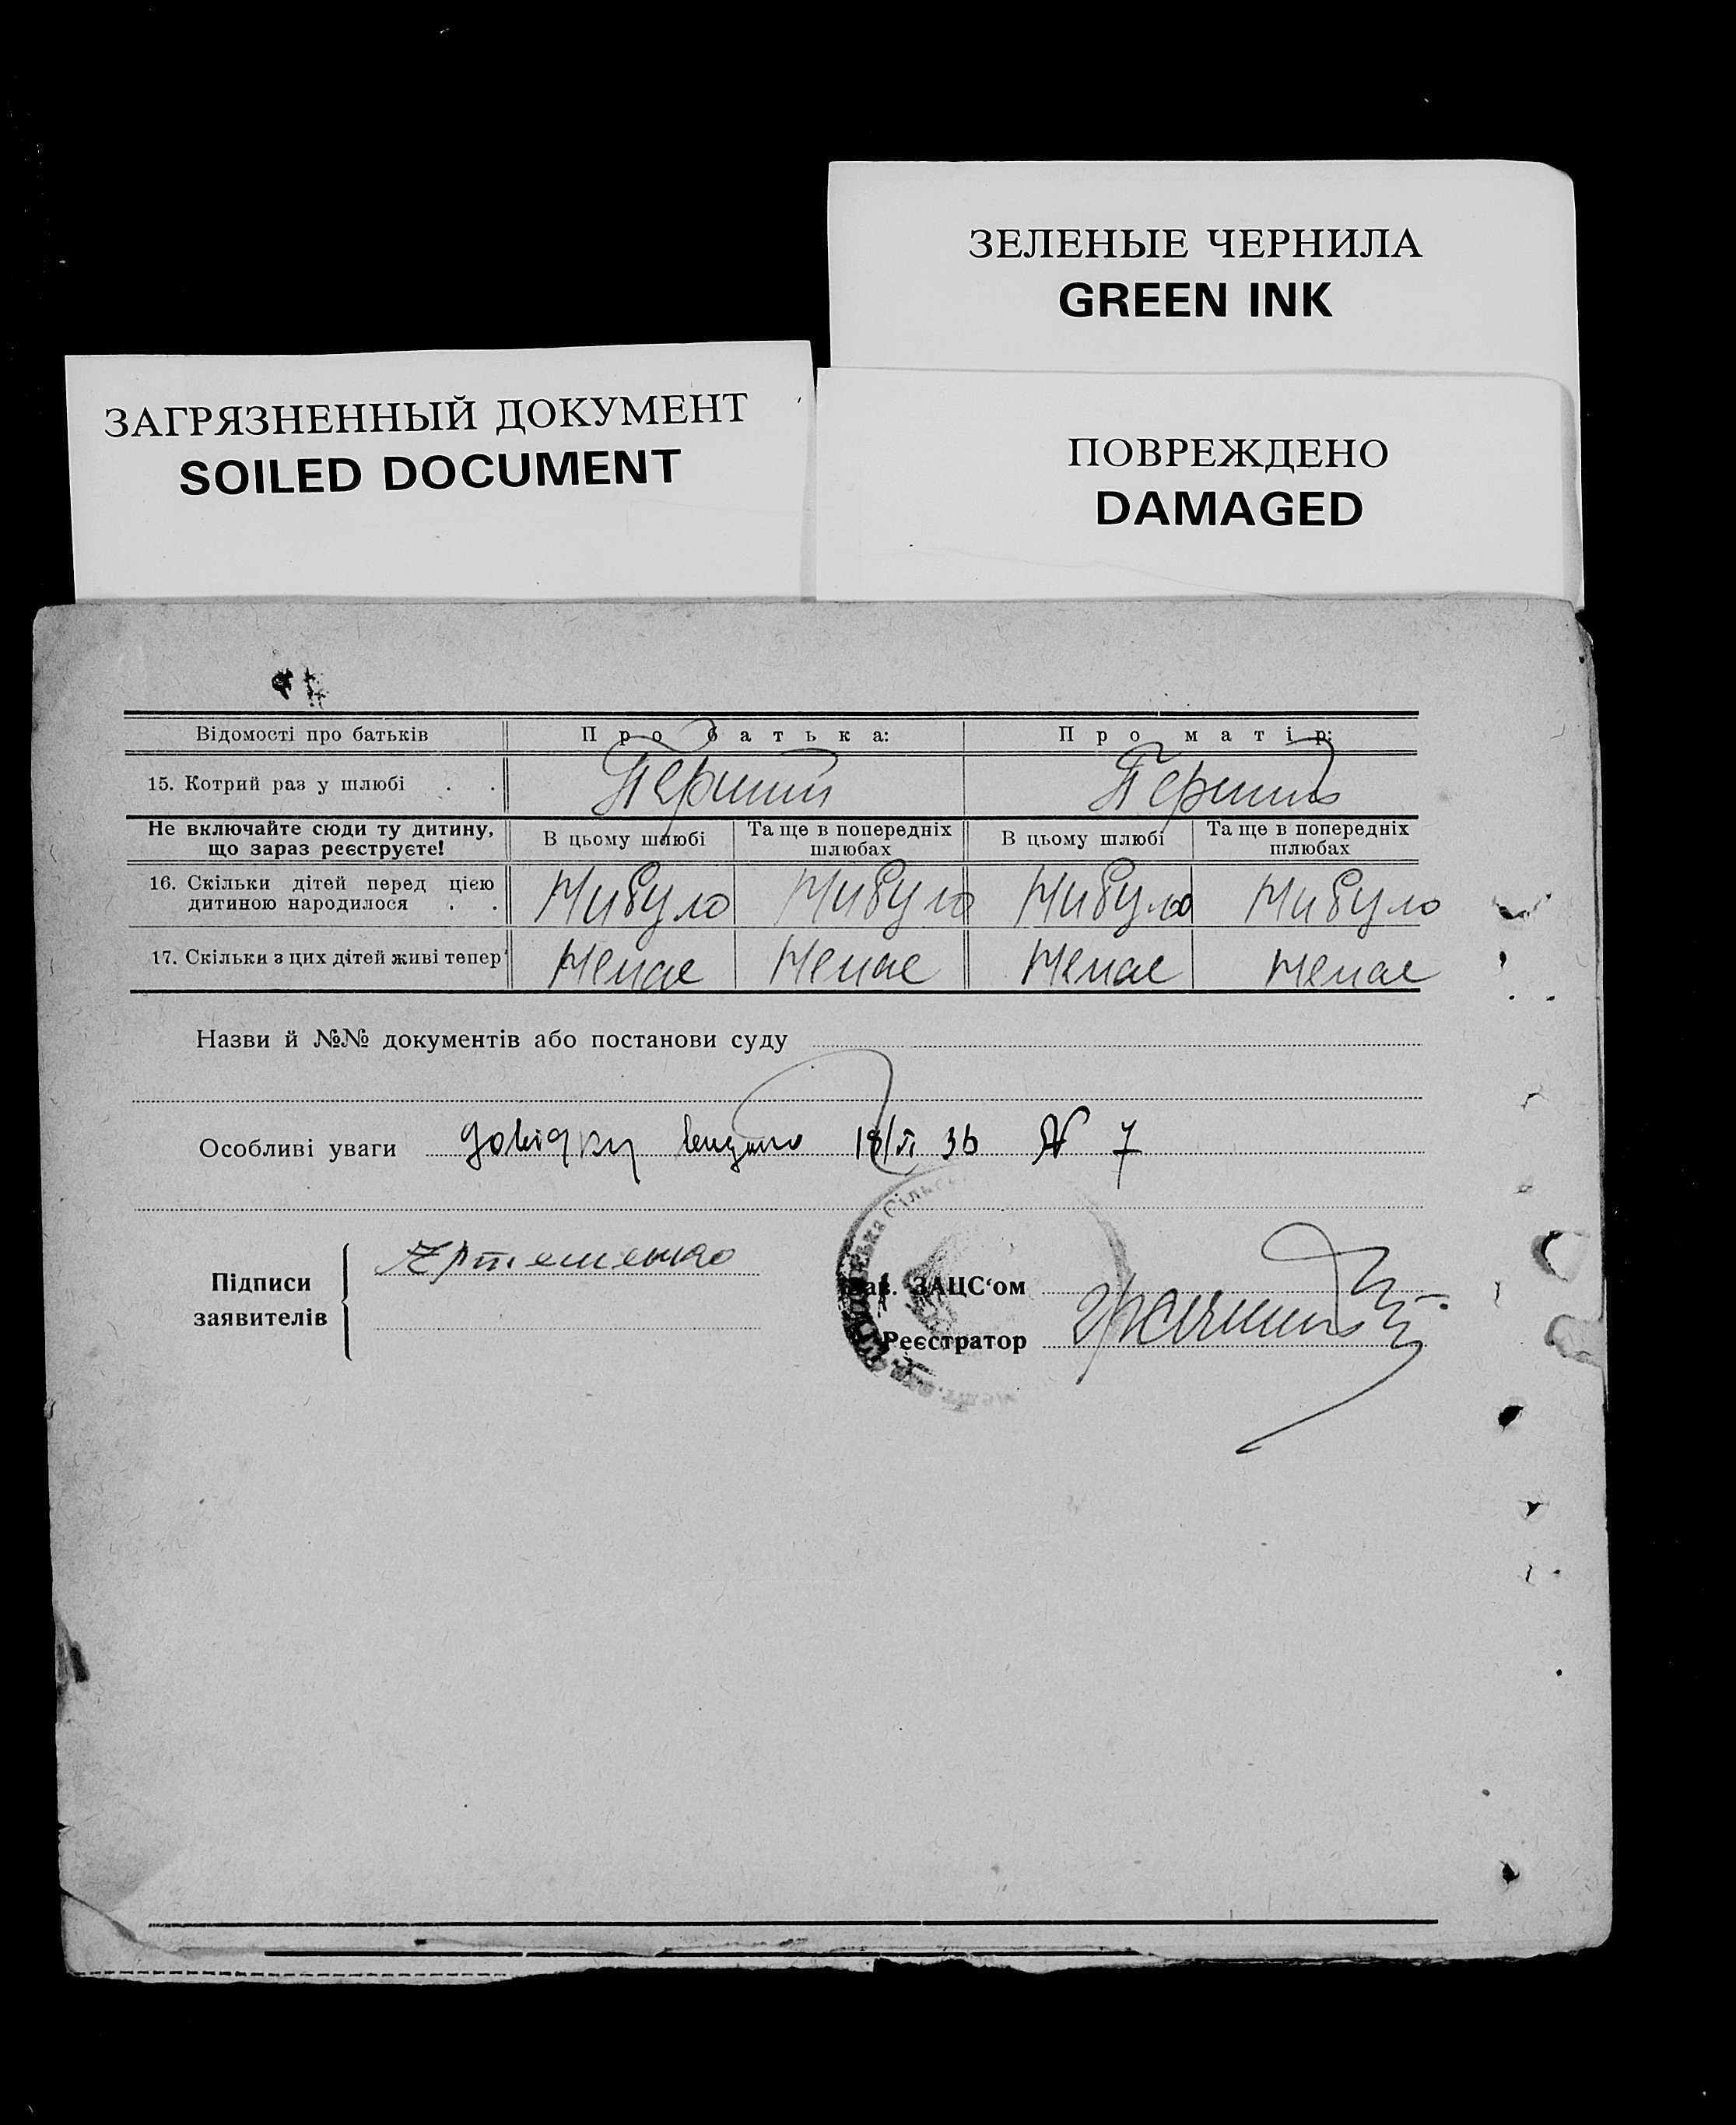 ЗЕЛЕНЫЕ ЧЕРНИЛА
GREEN INK
ЗАГРЯЗНЕННЫЙ ДОКУМЕНТ
SOILED DOCUMENT
ПОВРЕЖДЕНО
DAMAGED
Відомості про батьків Про батька: Про матір:
15. Котрий раз у шлюбі . . Перший Перший
Не включайте сюди ту дитину, що зараз реєструєте! В цьому шлюбі Та ще в попередніх шлюбах В цьому шлюбі Та ще в попередніх шлюбах
16. Скільки дітей перед цією дитиною народилося . . Нибуло Нибуло Нибуло Нибуло
17. Скільки з цих дітей живі тепер Немає Немає Немає Немає
Назви й №№ документів або постанови суду
Особливі уваги довідку видано 18/VI 36 № 7
Підписи заявителів Артеменко
Зав. ЗАЦС‘ом
Реєстратор